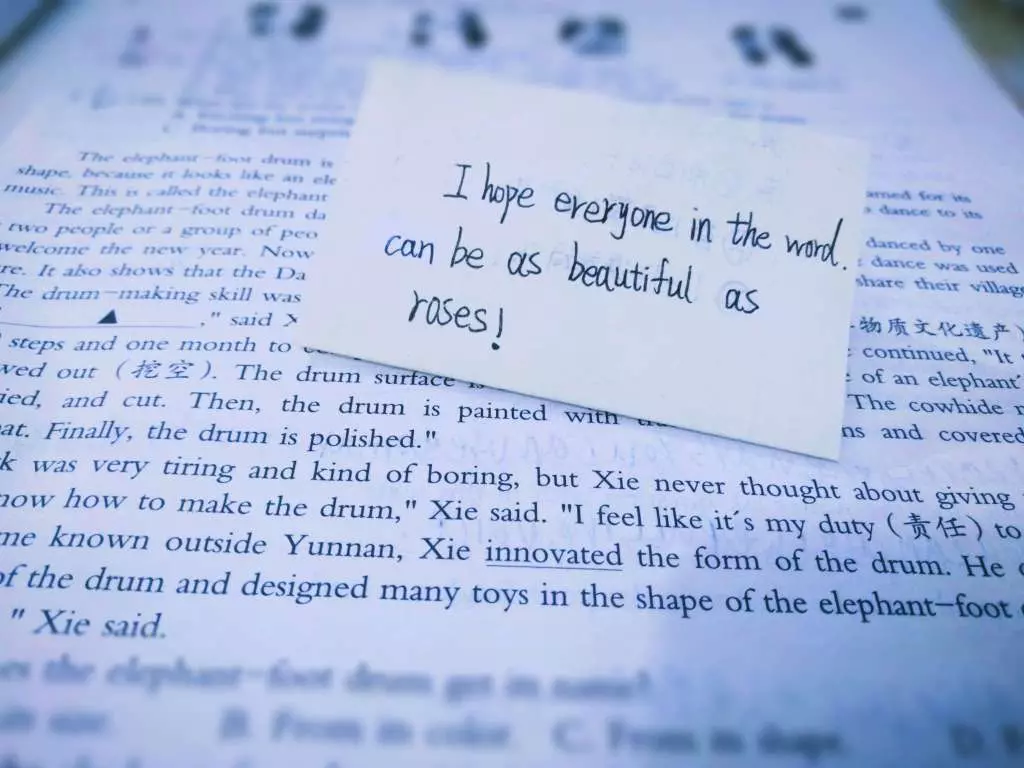 The elephant-foot drum is
shape, because it looks like an ele
music. This is called the elephant
The elephant-foot drum da
two people or a group of peo
welcome the new year. Now
re. It also shows that the Da
The drum-making skill was
▲ ," said X
steps and one month to
wed out (挖空). The drum surface
ied, and cut. Then, the drum is painted with
at. Finally, the drum is polished."
k was very tiring and kind of boring, but Xie never thought about giving
now how to make the drum," Xie said. "I feel like it's my duty (责任) to
me known outside Yunnan, Xie innovated the form of the drum. He
of the drum and designed many toys in the shape of the elephant-foot
" Xie said.
es the elephant-foot drum get its name?
B. From its color. C. From its shape. D.
I hope everyone in the word.
can be as beautiful as
roses!
amed for its
dance to its
danced by one
dance was used
share their village
物质文化遗产)
continued, "It
of an elephant'
The cowhide
ns and covered